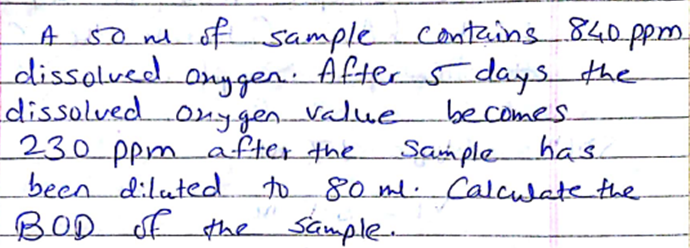 A 50 ml of sample contains 840 ppm
dissolved oxygen. After 5 days the
dissolved oxygen value becomes
230 ppm after the sample has
been diluted to 80 ml. Calculate the
BOD of the sample.